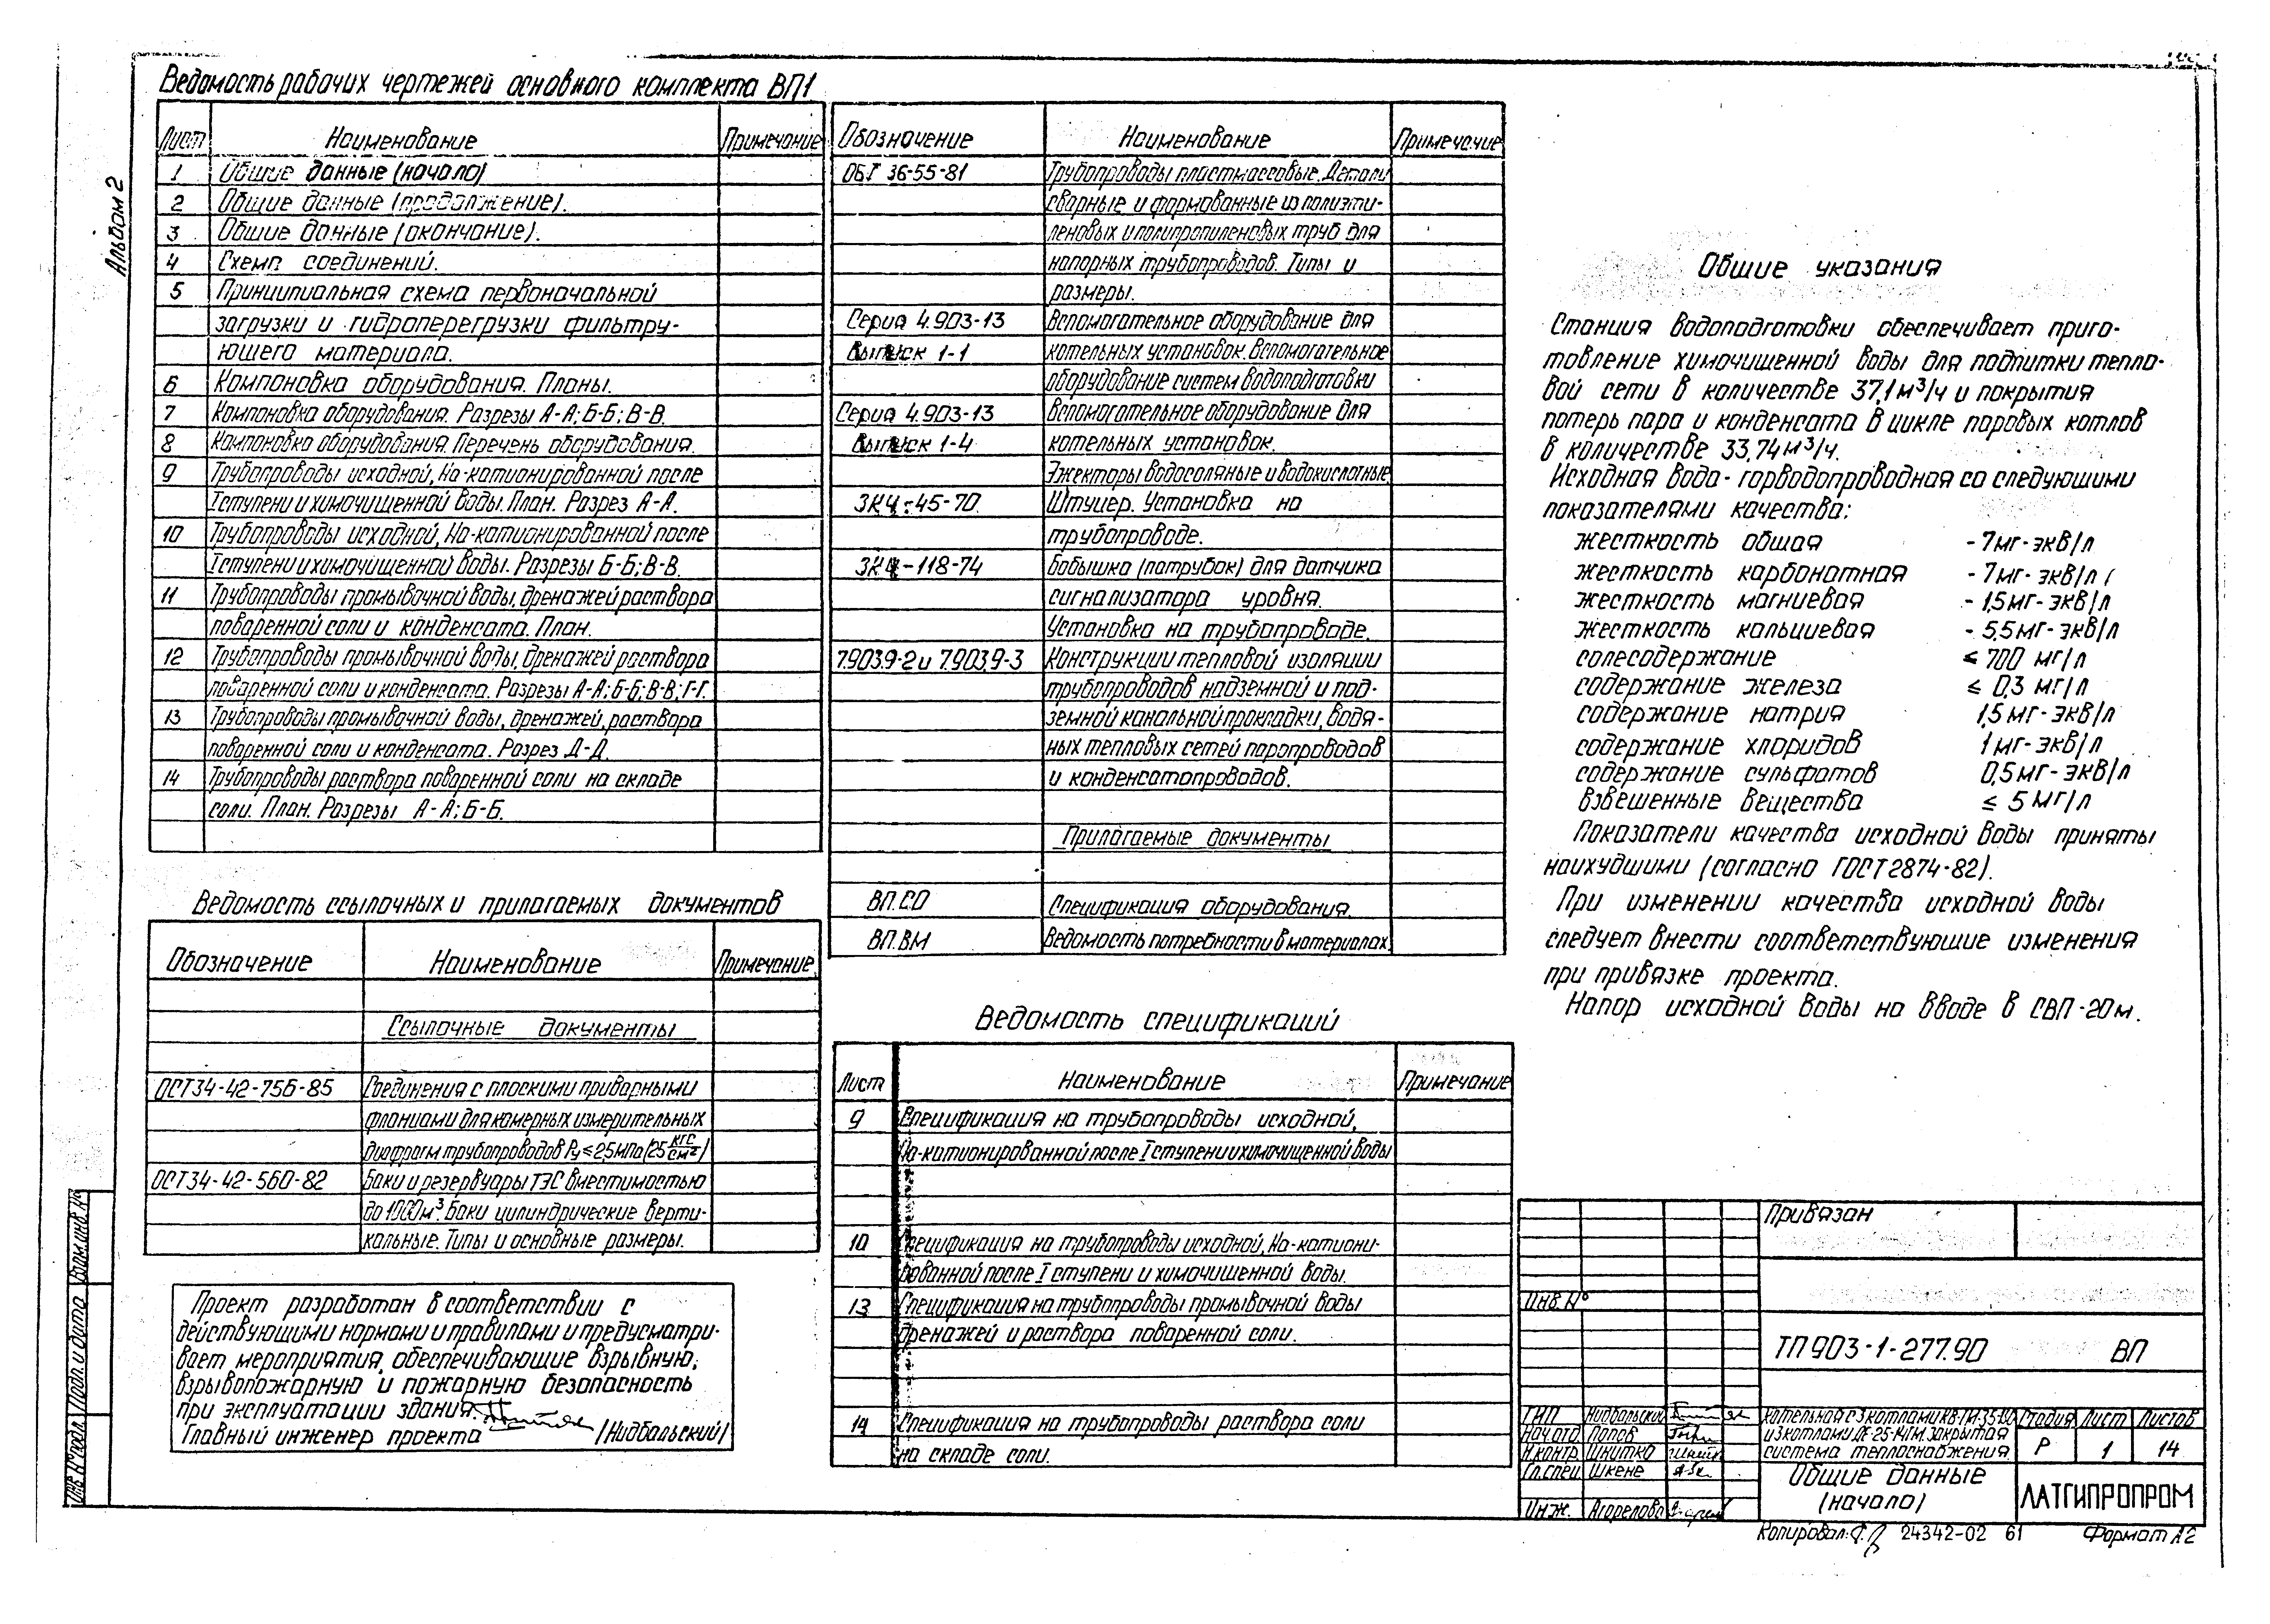 Альбом 2
Ведомость рабочих чертежей основного комплекта ВП1
Лист Наименование Примечание
1 Общие данные (начало)
2 Общие данные (продолжение).
3 Общие данные (окончание).
4 Схема соединений.
5 Принципиальная схема первоначальной
загрузки и гидроперегрузки фильтру-
ющего материала.
6 Компоновка оборудования. Планы.
7 Компоновка оборудования. Разрезы А-А; Б-Б; В-В.
8 Компоновка оборудования. Перечень оборудования.
9 Трубопроводы исходной, Na-катионированной после
I ступени и химочищенной воды. План. Разрез А-А.
10 Трубопроводы исходной, Na-катионированной после
I ступени и химочищенной воды. Разрезы Б-Б; В-В.
11 Трубопроводы промывочной воды, дренажей раствора
поваренной соли и конденсата. План.
12 Трубопроводы промывочной воды, дренажей раствора
поваренной соли и конденсата. Разрезы А-А; Б-Б; В-В; Г-Г.
13 Трубопроводы промывочной воды, дренажей, раствора
поваренной соли и конденсата. Разрез Д-Д.
14 Трубопроводы раствора поваренной соли на складе
соли. План. Разрезы А-А; Б-Б.
Ведомость ссылочных и прилагаемых документов
Обозначение Наименование Примечание
Ссылочные документы
ОСТ34-42-756-85 Соединения с плоскими приварными
фланцами для камерных измерительных
диафрагм трубопроводов Ру≤2,5 МПа (25 кгс/см²)
ОСТ34-42-560-82 Баки и резервуары ТЭС вместимостью
до 1000м³. Баки цилиндрические верти-
кальные. Типы и основные размеры.
Проект разработан в соответствии с
действующими нормами и правилами и предусматри-
вает мероприятия, обеспечивающие взрывную,
взрывопожарную и пожарную безопасность
при эксплуатации здания.
Главный инженер проекта /Нидбальский/
Обозначение Наименование Примечание
ОСТ 36-55-81 Трубопроводы пластмассовые. Детали
сварные и формованные из полиэти-
леновых и полипропиленовых труб для
напорных трубопроводов. Типы и
размеры.
Серия 4.903-13 Вспомогательное оборудование для
Выпуск 1-1 котельных установок. Вспомогательное
оборудование систем водоподготовки
Серия 4.903-13 Вспомогательное оборудование для
Выпуск 1-4 котельных установок.
Эжекторы водосоляные и водокислотные.
ЗК4-45-70 Штуцер. Установка на
трубопроводе.
ЗК4-118-74 Бобышка (патрубок) для датчика
сигнализатора уровня.
Установка на трубопроводе.
7.903.9-2 и 7.903.9-3 Конструкции тепловой изоляции
трубопроводов надземной и под-
земной канальной прокладки, водя-
ных тепловых сетей паропроводов
и конденсатопроводов.
Прилагаемые документы
ВП.СО Спецификация оборудования.
ВП.ВМ Ведомость потребности в материалах.
Ведомость спецификаций
Лист Наименование Примечание
9 Спецификация на трубопроводы исходной,
Na-катионированной после I ступени и химочищенной воды
10 Спецификация на трубопроводы исходной, Na-катиони-
рованной после I ступени и химочищенной воды.
13 Спецификация на трубопроводы промывочной воды
дренажей и раствора поваренной соли.
14 Спецификация на трубопроводы раствора соли
на складе соли.
Общие указания
Станция водоподготовки обеспечивает приго-
товление химочищенной воды для подпитки тепло-
вой сети в количестве 37,1 м³/ч и покрытия
потерь пара и конденсата в цикле паровых котлов
в количестве 33,74 м³/ч.
Исходная вода - горводопроводная со следующими
показателями качества:
жесткость общая - 7 мг-экв/л
жесткость карбонатная - 7 мг-экв/л
жесткость магниевая - 1,5 мг-экв/л
жесткость кальциевая - 5,5 мг-экв/л
солесодержание ≤ 700 мг/л
содержание железа ≤ 0,3 мг/л
содержание натрия 1,5 мг-экв/л
содержание хлоридов 1 мг-экв/л
содержание сульфатов 0,5 мг-экв/л
взвешенные вещества ≤ 5 мг/л
Показатели качества исходной воды приняты
наихудшими (согласно ГОСТ 2874-82).
При изменении качества исходной воды
следует внести соответствующие изменения
при привязке проекта.
Напор исходной воды на вводе в СВП-20м.
Привязан
Инв.№
ТП 903-1-277.90 ВП
ГИП Нидбальский
Нач.отд. Попов
Н.контр. Шнитко
Гл.спец. Шкене
Инж. Агорелова
Котельная с 3 котлами КВ-ГМ-35-150
и 3 котлами ДЕ-25-14ГМ. Закрытая
система теплоснабжения.
Стадия Лист Листов
Р 1 14
Общие данные
(начало)
ЛАТГИПРОПРОМ
Копировал: 24342-02 61 Формат А2
Взам.инв.№
Подп. и дата
Инв.№ подл.